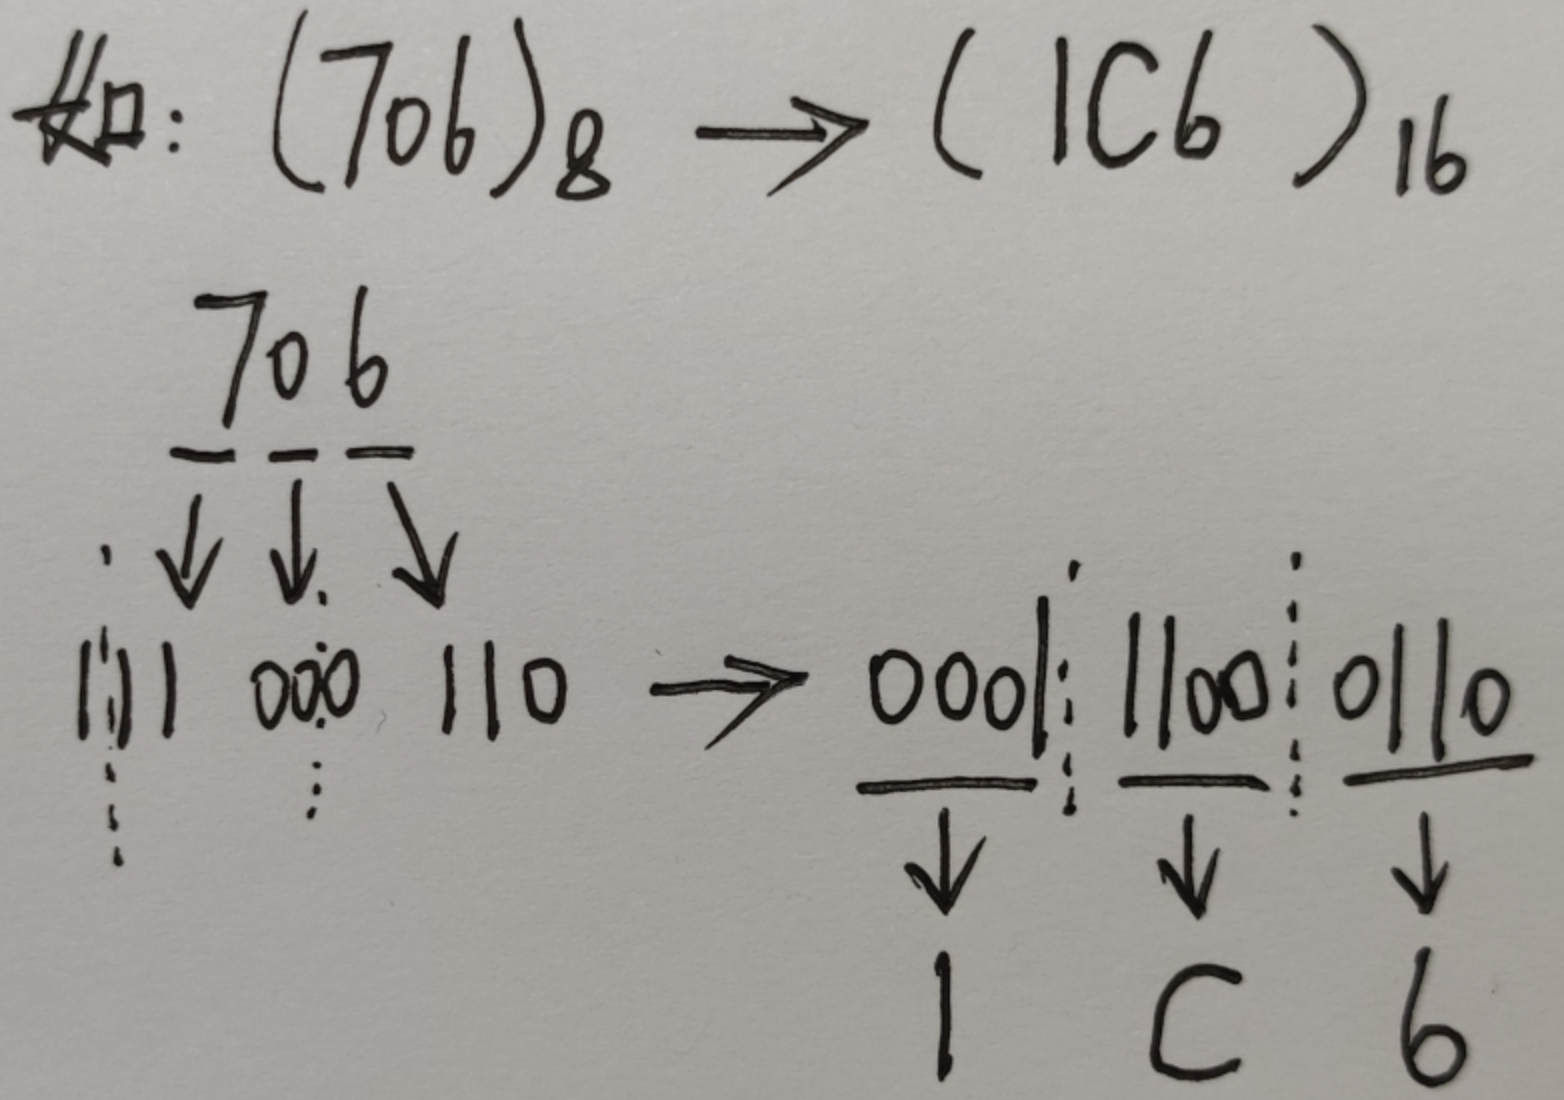 如: (706)8 → (1C6)16
706
111 000 110 → 0001 1100 0110
1 C 6